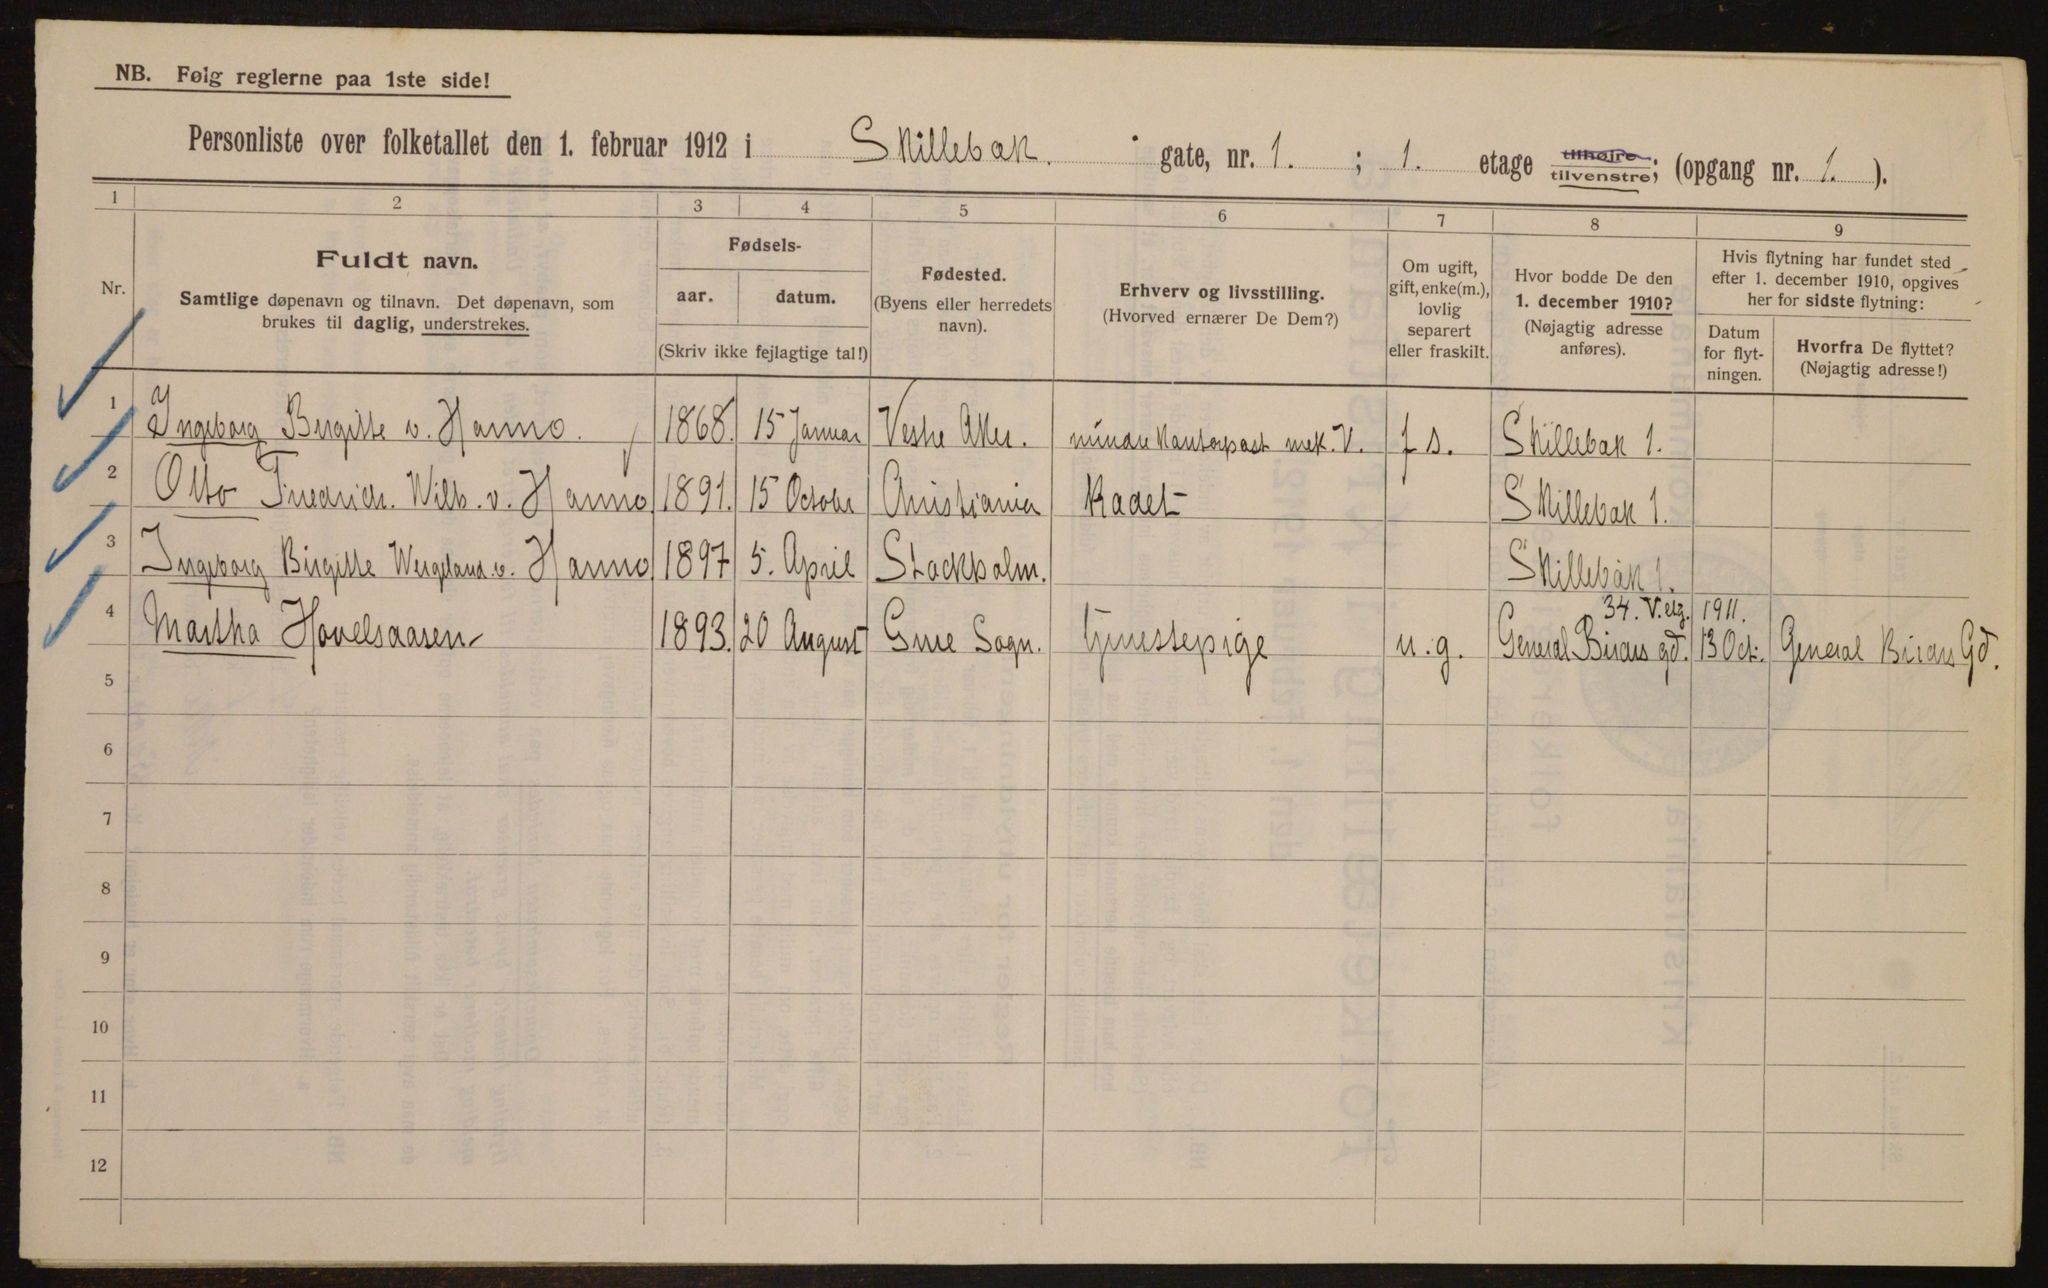 NB. Følg reglerne paa 1ste side!
Personliste over folketallet den 1. februar 1912 i Skillebæk. gate, nr. 1. ; 1. etage tilhøjre tilvenstre; (opgang nr. 1. ).
1 2 3 4 5 6 7 8 9
Nr.
Fuldt navn.
Samtlige døpenavn og tilnavn. Det døpenavn, som
brukes til daglig, understrekes.
Fødsels-
aar. datum.
(Skriv ikke fejlagtige tal!)
Fødested.
(Byens eller herredets
navn).
Erhverv og livsstilling.
(Hvorved ernærer De Dem?)
Om ugift,
gift, enke(m.),
lovlig
separert
eller fraskilt.
Hvor bodde De den
1. december 1910?
(Nøjagtig adresse
anføres).
Hvis flytning har fundet sted
efter 1. december 1910, opgives
her for sidste flytning:
Datum
for flyt-
ningen.
Hvorfra De flyttet?
(Nøjagtig adresse!)
1 Ingeborg Birgitte v. Hanno. 1868. 15 Januar Vestre Aker. mindre Kontorpost mek. V. f s. Skillebæk 1.
2 Otto Friedrich. Wilh. v. Hanno 1891. 15 October Christiania Kadet Skillebæk 1.
3 Ingeborg Birgitte Wergeland v. Hanno 1897 5. April Stockholm. Skillebæk 1.
34. V. etg. 1911.
4 Martha Hovelsaasen 1893. 20 August Sogn. Tjenestepige u. g. General Birchs gd. 13 Oct. General Birchs Gd.
5
6
7
8
9
10
11
12